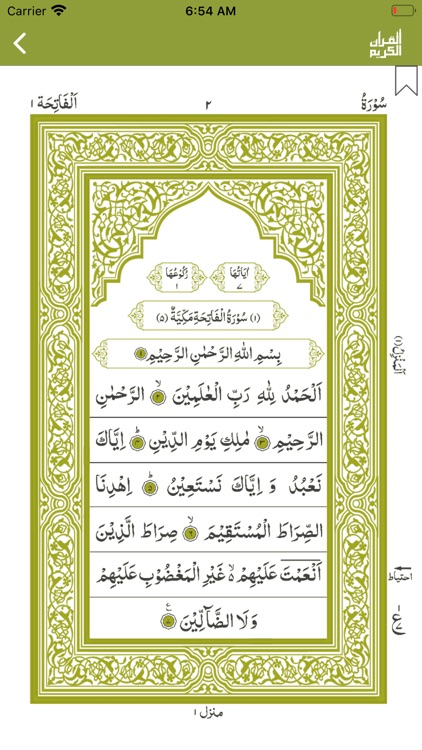 Carrier 6:54 AM
القرآن الكريم
سُوْرَةُ ٢ اَلْفَاتِحَة ١
اٰيَاتُهَا ٧ رُكُوْعُهَا ١
(١) سُوْرَةُ الْفَاتِحَةِ مَكِّيَّةٌ (٥)
بِسْمِ اللّٰهِ الرَّحْمٰنِ الرَّحِيْمِ ١
اَلْحَمْدُ لِلّٰهِ رَبِّ الْعٰلَمِيْنَ ۙ ٢ الرَّحْمٰنِ
الرَّحِيْمِ ۙ ٣ مٰلِكِ يَوْمِ الدِّيْنِ ؕ ٤ اِيَّاكَ
نَعْبُدُ وَ اِيَّاكَ نَسْتَعِيْنُ ؕ ٥ اِهْدِنَا
الصِّرَاطَ الْمُسْتَقِيْمَ ۙ ٦ صِرَاطَ الَّذِيْنَ
اَنْعَمْتَ عَلَيْهِمْ ۙ۬ غَيْرِ الْمَغْضُوْبِ عَلَيْهِمْ
وَلَا الضَّآلِّيْنَ ٧ ع
اَلْمَنْزِلُ (١)
احتياط
ع
منزل ١